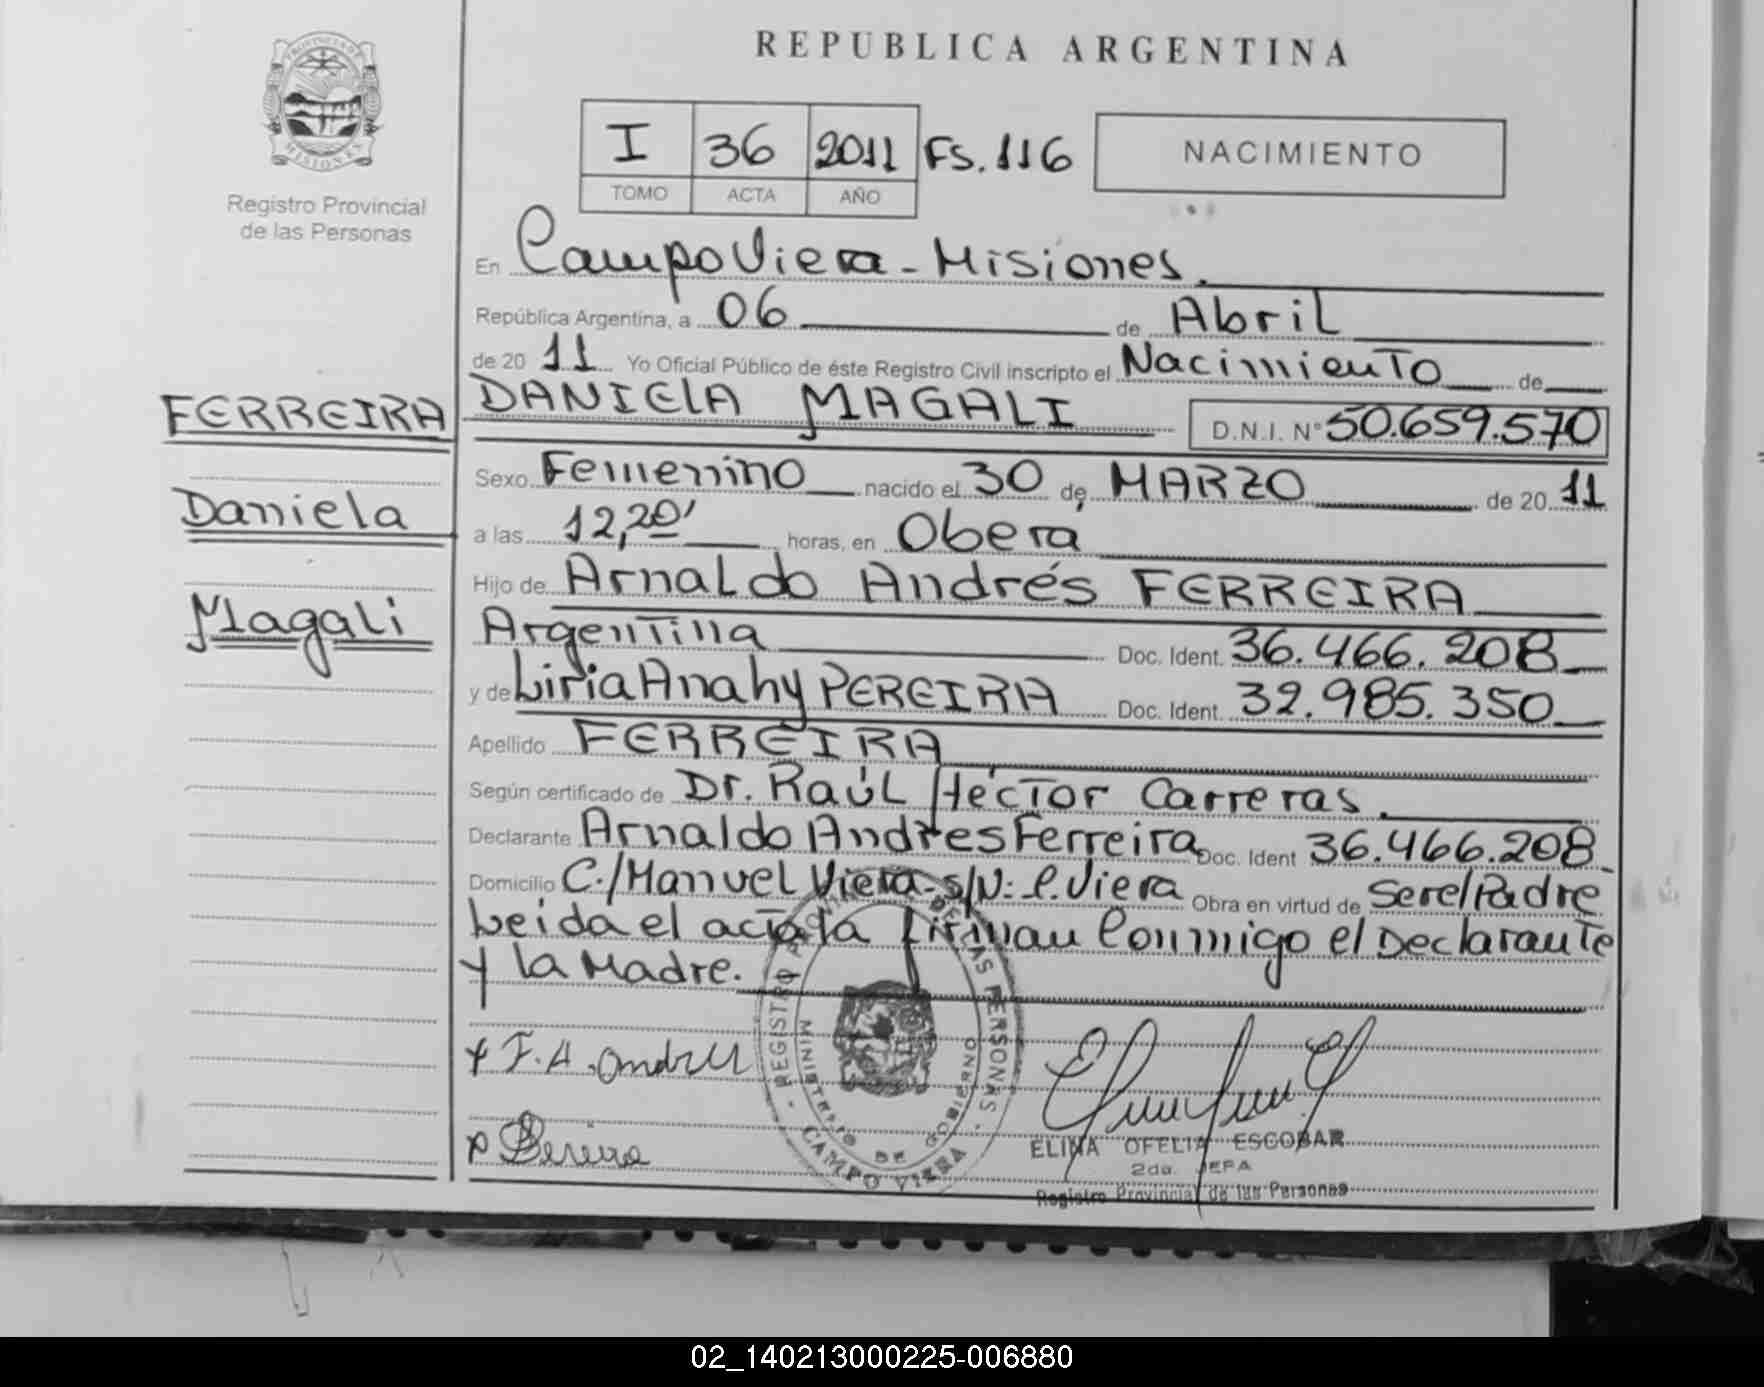 REPUBLICA ARGENTINA
PROVINCIA DE
MISIONES
Registro Provincial
de las Personas
I 36 2011 FS.116
TOMO ACTA AÑO
NACIMIENTO
En Campo Viera - Misiones.
República Argentina, a 06 de Abril
de 20 11 Yo Oficial Público de éste Registro Civil inscripto el Nacimiento de
FERREIRA
DANIElA MAGALI D.N.I. N° 50.659.570
Sexo Femenino nacido el 30 de MARZO de 20 11
Daniela
a las 12,20' horas, en Oberá
Hijo de Arnaldo Andrés FERREIRA
Magali
Argentina Doc. Ident. 36.466.208
y de Liria Anahy PEREIRA Doc. Ident. 32.985.350
Apellido FERREIRA
Según certificado de Dr. Raúl Héctor Carreras.
Declarante Arnaldo Andres Ferreira Doc. Ident 36.466.208
Domicilio C./Manuel Viera - s/N: C. Viera Obra en virtud de Ser el Padre
Leida el acta la firman Conmigo el Declarante
y la Madre.
REGISTRO PROVINCIAL DE LAS PERSONAS
MINISTERIO DE GOBIERNO
CAMPO VIERA
x F.A. Andres
x Pereira
ELINA OFELIA ESCOBAR
2da. JEFA
Registro Provincial de las Personas
02_140213000225-006880